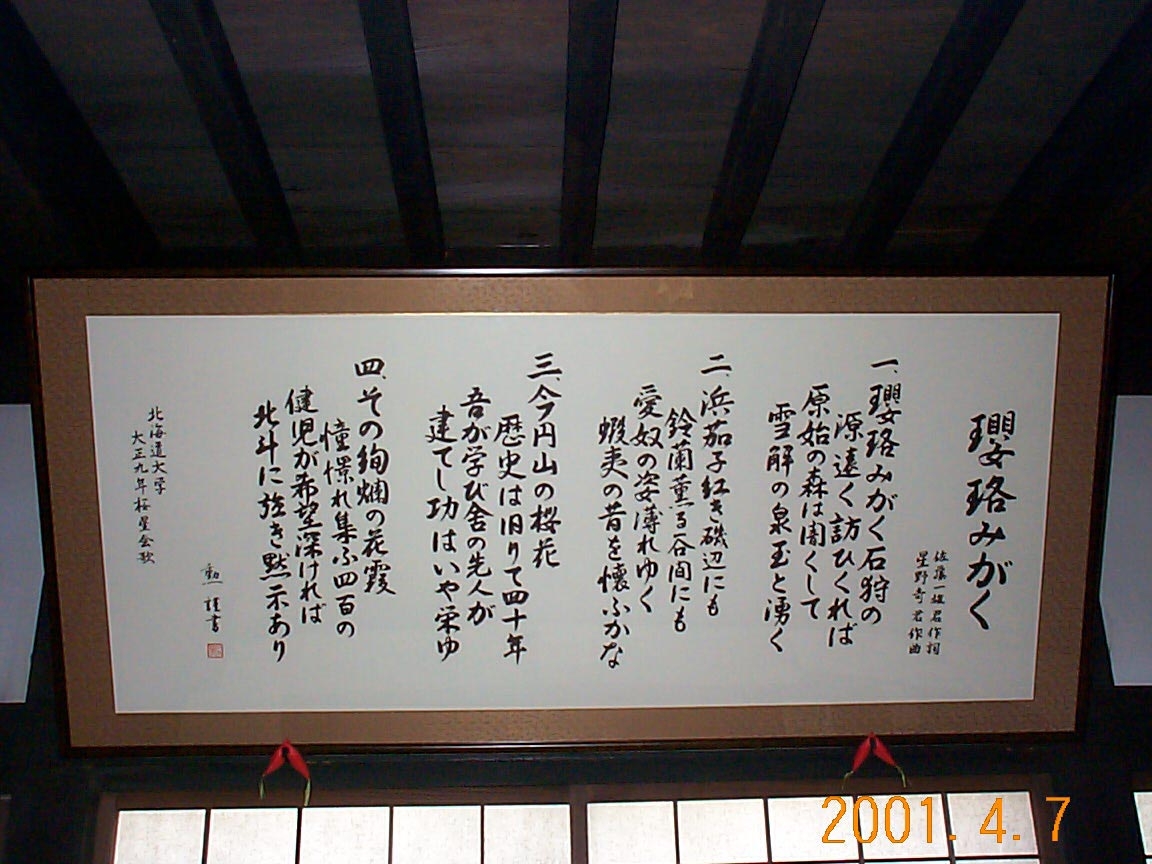 瓔珞みがく
佐藤一雄君作詞
星野奇君作曲
一、瓔珞みがく石狩の
源遠く訪ひくれば
原始の森は闇くして
雪解の泉玉と湧く
二、浜茄子紅き磯辺にも
鈴蘭薫る谷間にも
愛奴の姿薄れゆく
蝦夷の昔を懐ふかな
三、今円山の桜花
歴史は旧りて四十年
吾が学び舎の先人が
建てし功はいや栄ゆ
四、その絢爛の花霞
憧憬れ集ふ四百の
健児が希望深ければ
北斗に強き黙示あり
勲謹書
北海道大学
大正九年桜星会歌
2001. 4. 7